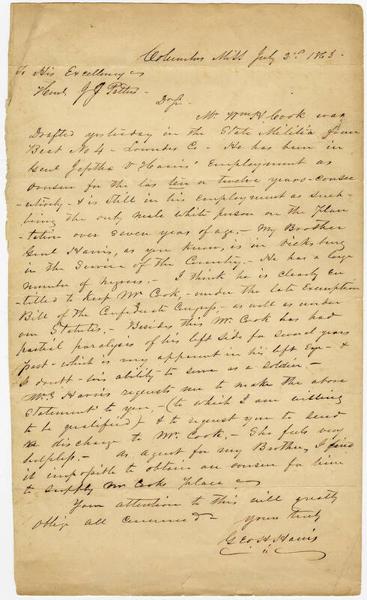 Columbus Miss July 2d 1863.
To His Excellency
Honl J J Pettus
Dr Sir
Mr Wm H. Cook was
Drafted yesterday in the State Militia from
Beat No 4 - Lowndes Co - He has been in
Genl Jeptha V Harris' Employment as
overseer for the las ten or twelve years - consec
utively - & is still in his employment as such -
being the only male white person on the Plan
tation over seven years of age. - My Brother
Genl Harris, as you know, is in Vicksburg
in the Service of the Country - He has a large
number of negroes. - I think he is clearly en
titled to Keep Mr Cook, - under the late Exemption
Bill of the Confederate Congress - as well as under
our Statutes. - Besides this Mr Cook has had
partial paralysis of his left side for several years
past - which is very apparent in his left Eye - &
I doubt his ability to serve as a soldier. -
Mrs Harris requests me to make the above
Statement to you, - (to which I am willing
to be qualified) & to request you to send
a discharge to Mr Cook, - She feels very
helpless - As agent for my Brother, I find
it impossible to obtain an overseer for him
to supply Mr Cooks place
Your attention to this will greatly
oblige all concerned -
Yours truly
Geo. H. Harris